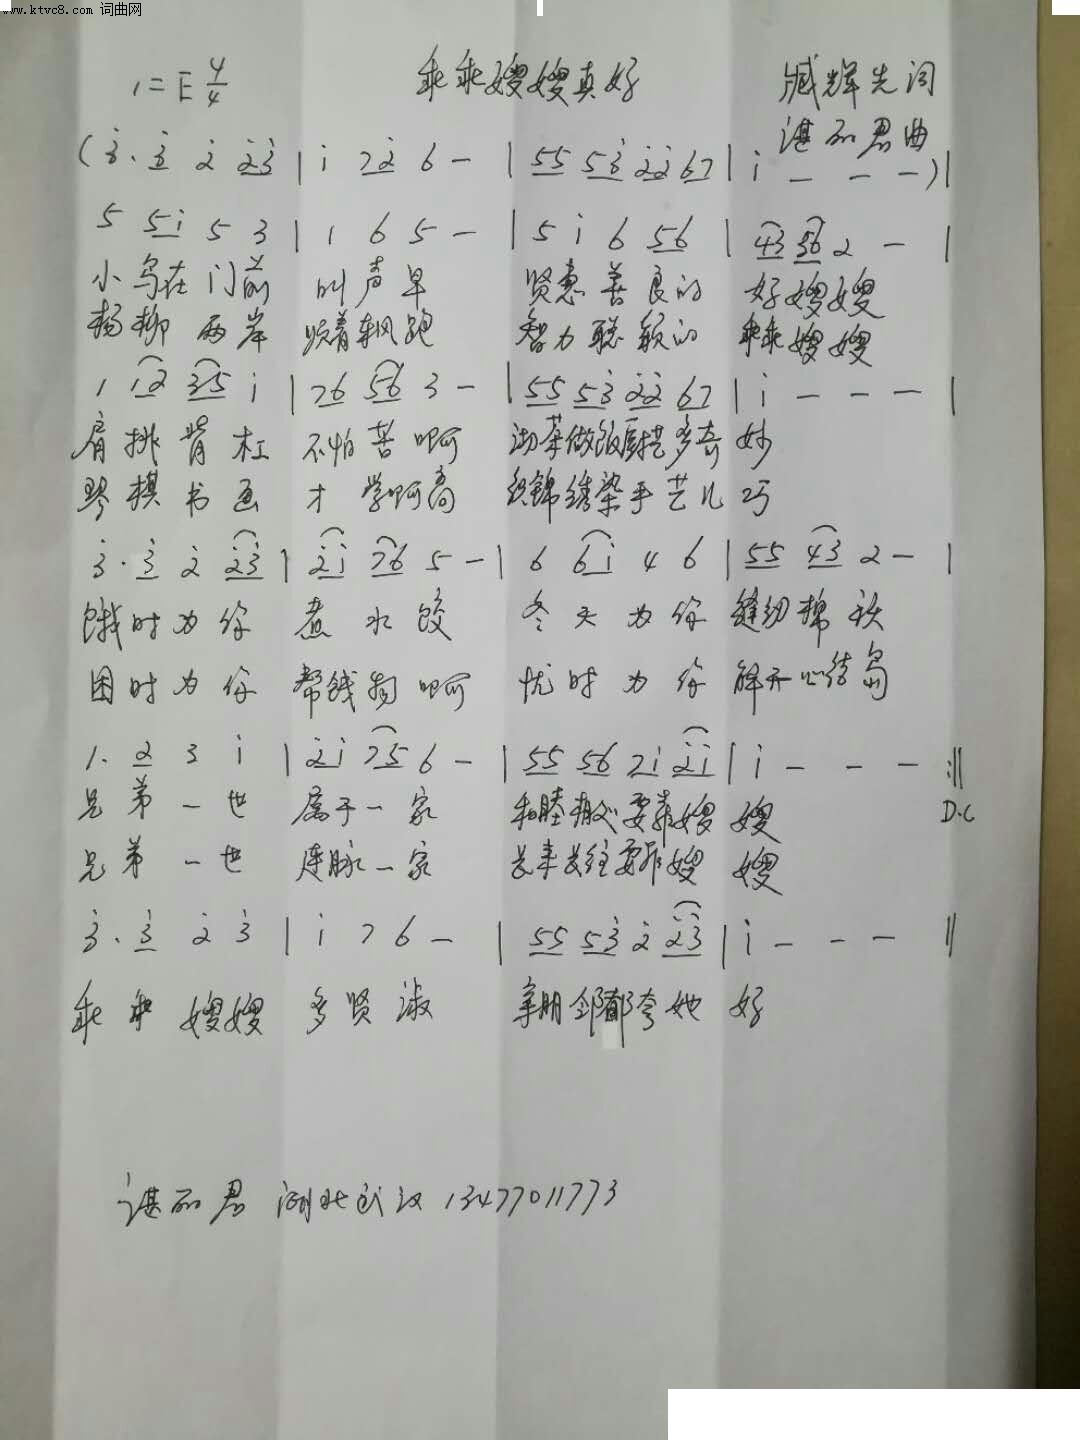 www.ktvc8.com 词曲网
1=E 4/4 乖乖嫂嫂真好 臧辉先词
谌丽君曲
(3̇. 3̇ 2̇ 2̇3̇ | i 72̇ 6 — | 55 53̇ 2̇2̇ 67 | i — — —)|
5 5i 5 3 | 1 6 5 — | 5 i 6 56 | 43 36 2 — |
小鸟在门前 叫声早 贤惠善良的 好嫂嫂
杨柳两岸 顺着飘 智力聪颖的 乖乖嫂嫂
1 12 35 i | 76 56 3 — | 55 53̇ 2̇2̇ 67 | i — — — |
肩挑背杠 不怕苦啊 做饭厨艺多奇 妙
琴棋书画 才学啊高 织锦绣染手艺儿 巧
3̇. 3̇ 2̇ 2̇3̇ | 2̇i 76 5 — | 6 6i 4 6 | 55 43 2 — |
饿时为你 煮水饺 冬天为你 缝纫棉袄
困时为你 帮钱物啊 忧时为你 解开心结
1. 2 3 i | 2̇i 75 6 — | 55 56 7i 2̇i | i — — — :||
兄弟一世 属于一家 和睦要靠嫂 嫂 D.C
兄弟一世 连脉一家 要靠嫂 嫂
3̇. 3̇ 2̇ 3̇ | i 7 6 — | 55 53̇ 2̇ 2̇3̇ | i — — — ||
乖乖嫂嫂 多贤淑 亲朋邻都夸她 好
谌丽君 湖北武汉 13477011773